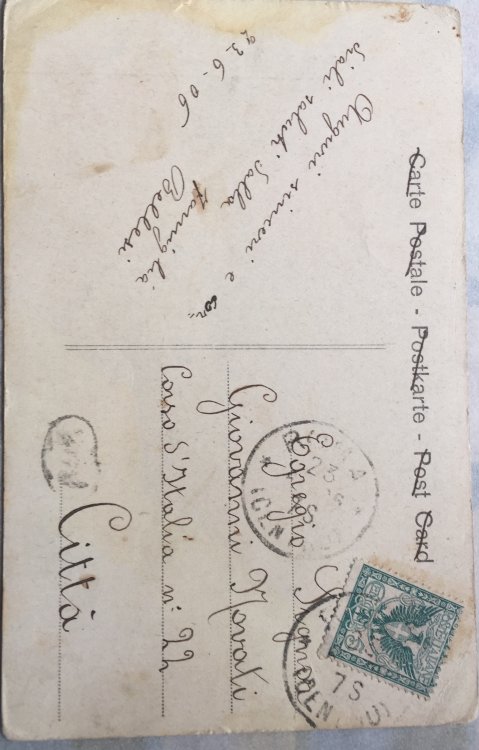 Carte Postale - Postkarte - Post Card
Auguri sinceri e cor
diali saluti dalla
Famiglia
Bellesi
23-6-06
Egregio Signor
Giovanni Novati
Corso d'Italia n: 22
Città